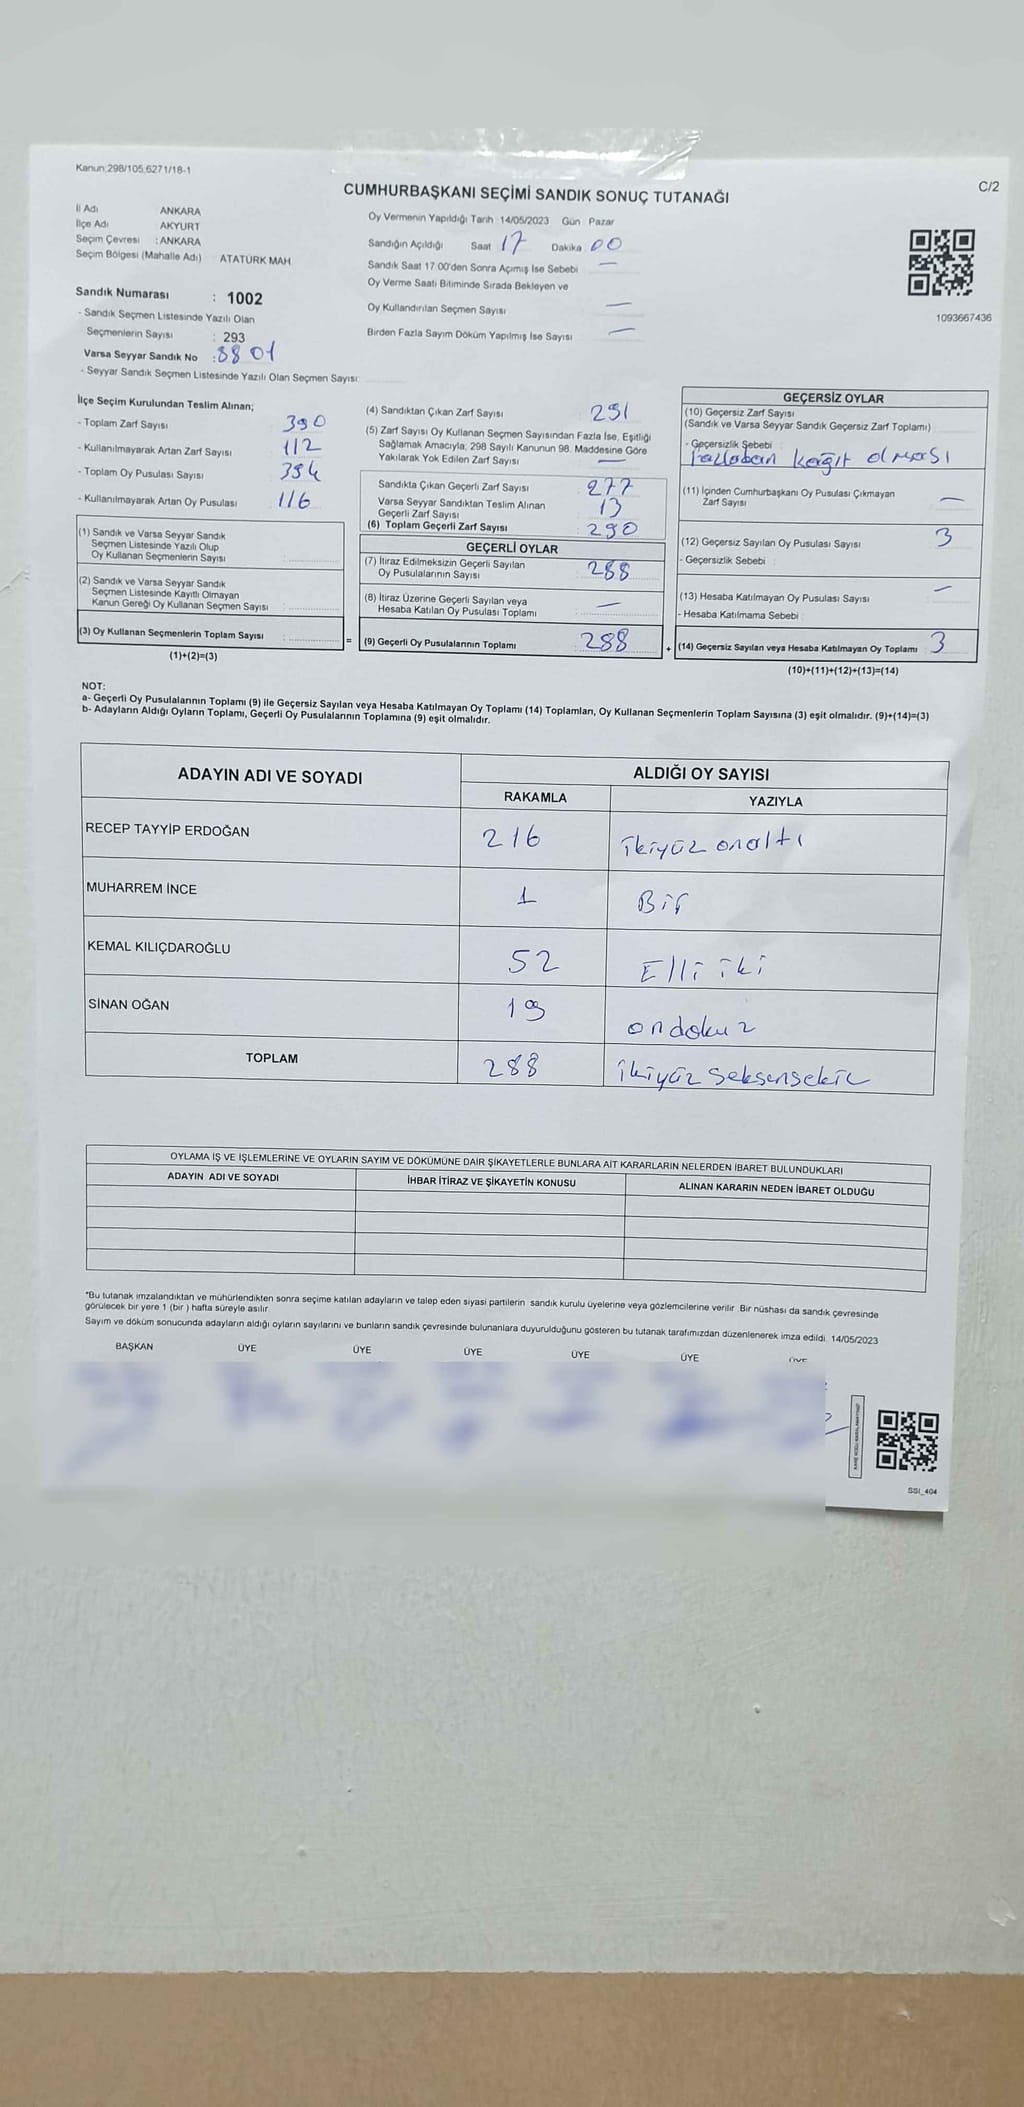 Kanun:298/105,6271/18-1
C/2
CUMHURBAŞKANI SEÇİMİ SANDIK SONUÇ TUTANAĞI
İl Adı ANKARA
İlçe Adı AKYURT
Seçim Çevresi : ANKARA
Seçim Bölgesi (Mahalle Adı) ATATÜRK MAH.
Sandık Numarası : 1002
- Sandık Seçmen Listesinde Yazılı Olan
Seçmenlerin Sayısı : 293
Varsa Seyyar Sandık No : 8801
- Seyyar Sandık Seçmen Listesinde Yazılı Olan Seçmen Sayısı:
Oy Vermenin Yapıldığı Tarih : 14/05/2023 Gün : Pazar
Sandığın Açıldığı Saat 17 Dakika 00
Sandık Saat 17.00'den Sonra Açımış İse Sebebi —
Oy Verme Saati Bitiminde Sırada Bekleyen ve
Oy Kullandırılan Seçmen Sayısı —
Birden Fazla Sayım Döküm Yapılmış İse Sayısı —
1093667436
İlçe Seçim Kurulundan Teslim Alınan;
- Toplam Zarf Sayısı 390
- Kullanılmayarak Artan Zarf Sayısı 112
- Toplam Oy Pusulası Sayısı 394
- Kullanılmayarak Artan Oy Pusulası 116
(1) Sandık ve Varsa Seyyar Sandık
Seçmen Listesinde Yazılı Olup
Oy Kullanan Seçmenlerin Sayısı
(2) Sandık ve Varsa Seyyar Sandık
Seçmen Listesinde Kayıtlı Olmayan
Kanun Gereği Oy Kullanan Seçmen Sayısı
(3) Oy Kullanan Seçmenlerin Toplam Sayısı =
(1)+(2)=(3)
(4) Sandıktan Çıkan Zarf Sayısı 291
(5) Zarf Sayısı Oy Kullanan Seçmen Sayısından Fazla İse, Eşitliği
Sağlamak Amacıyla; 298 Sayılı Kanunun 98. Maddesine Göre
Yakılarak Yok Edilen Zarf Sayısı —
Sandıkta Çıkan Geçerli Zarf Sayısı 277
Varsa Seyyar Sandıktan Teslim Alınan
Geçerli Zarf Sayısı 13
(6) Toplam Geçerli Zarf Sayısı 290
GEÇERLİ OYLAR
(7) İtiraz Edilmeksizin Geçerli Sayılan
Oy Pusulalarının Sayısı 288
(8) İtiraz Üzerine Geçerli Sayılan veya
Hesaba Katılan Oy Pusulası Toplamı —
(9) Geçerli Oy Pusulalarının Toplamı 288 +
GEÇERSİZ OYLAR
(10) Geçersiz Zarf Sayısı
(Sandık ve Varsa Seyyar Sandık Geçersiz Zarf Toplamı)
- Geçersizlik Sebebi :
fazladan kağıt olması
(11) İçinden Cumhurbaşkanı Oy Pusulası Çıkmayan
Zarf Sayısı —
(12) Geçersiz Sayılan Oy Pusulası Sayısı 3
- Geçersizlik Sebebi :
(13) Hesaba Katılmayan Oy Pusulası Sayısı —
- Hesaba Katılmama Sebebi :
(14) Geçersiz Sayılan veya Hesaba Katılmayan Oy Toplamı 3
(10)+(11)+(12)+(13)=(14)
NOT:
a- Geçerli Oy Pusulalarının Toplamı (9) ile Geçersiz Sayılan veya Hesaba Katılmayan Oy Toplamı (14) Toplamları, Oy Kullanan Seçmenlerin Toplam Sayısına (3) eşit olmalıdır. (9)+(14)=(3)
b- Adayların Aldığı Oyların Toplamı, Geçerli Oy Pusulalarının Toplamına (9) eşit olmalıdır.
ADAYIN ADI VE SOYADI ALDIĞI OY SAYISI
RAKAMLA YAZIYLA
RECEP TAYYİP ERDOĞAN 216 ikiyüz onaltı
MUHARREM İNCE 1 Bir
KEMAL KILIÇDAROĞLU 52 Elli iki
SİNAN OĞAN 19 ondokuz
TOPLAM 288 ikiyüz seksensekiz
OYLAMA İŞ VE İŞLEMLERİNE VE OYLARIN SAYIM VE DÖKÜMÜNE DAİR ŞİKAYETLERLE BUNLARA AİT KARARLARIN NELERDEN İBARET BULUNDUKLARI
ADAYIN ADI VE SOYADI İHBAR İTİRAZ VE ŞİKAYETİN KONUSU ALINAN KARARIN NEDEN İBARET OLDUĞU
*Bu tutanak imzalandıktan ve mühürlendikten sonra seçime katılan adayların ve talep eden siyasi partilerin sandık kurulu üyelerine veya gözlemcilerine verilir. Bir nüshası da sandık çevresinde
görülecek bir yere 1 (bir) hafta süreyle asılır.
Sayım ve döküm sonucunda adayların aldığı oyların sayılarını ve bunların sandık çevresinde bulunanlara duyurulduğunu gösteren bu tutanak tarafımızdan düzenlenerek imza edildi. 14/05/2023
BAŞKAN ÜYE ÜYE ÜYE ÜYE ÜYE ÜYE
SSI_404